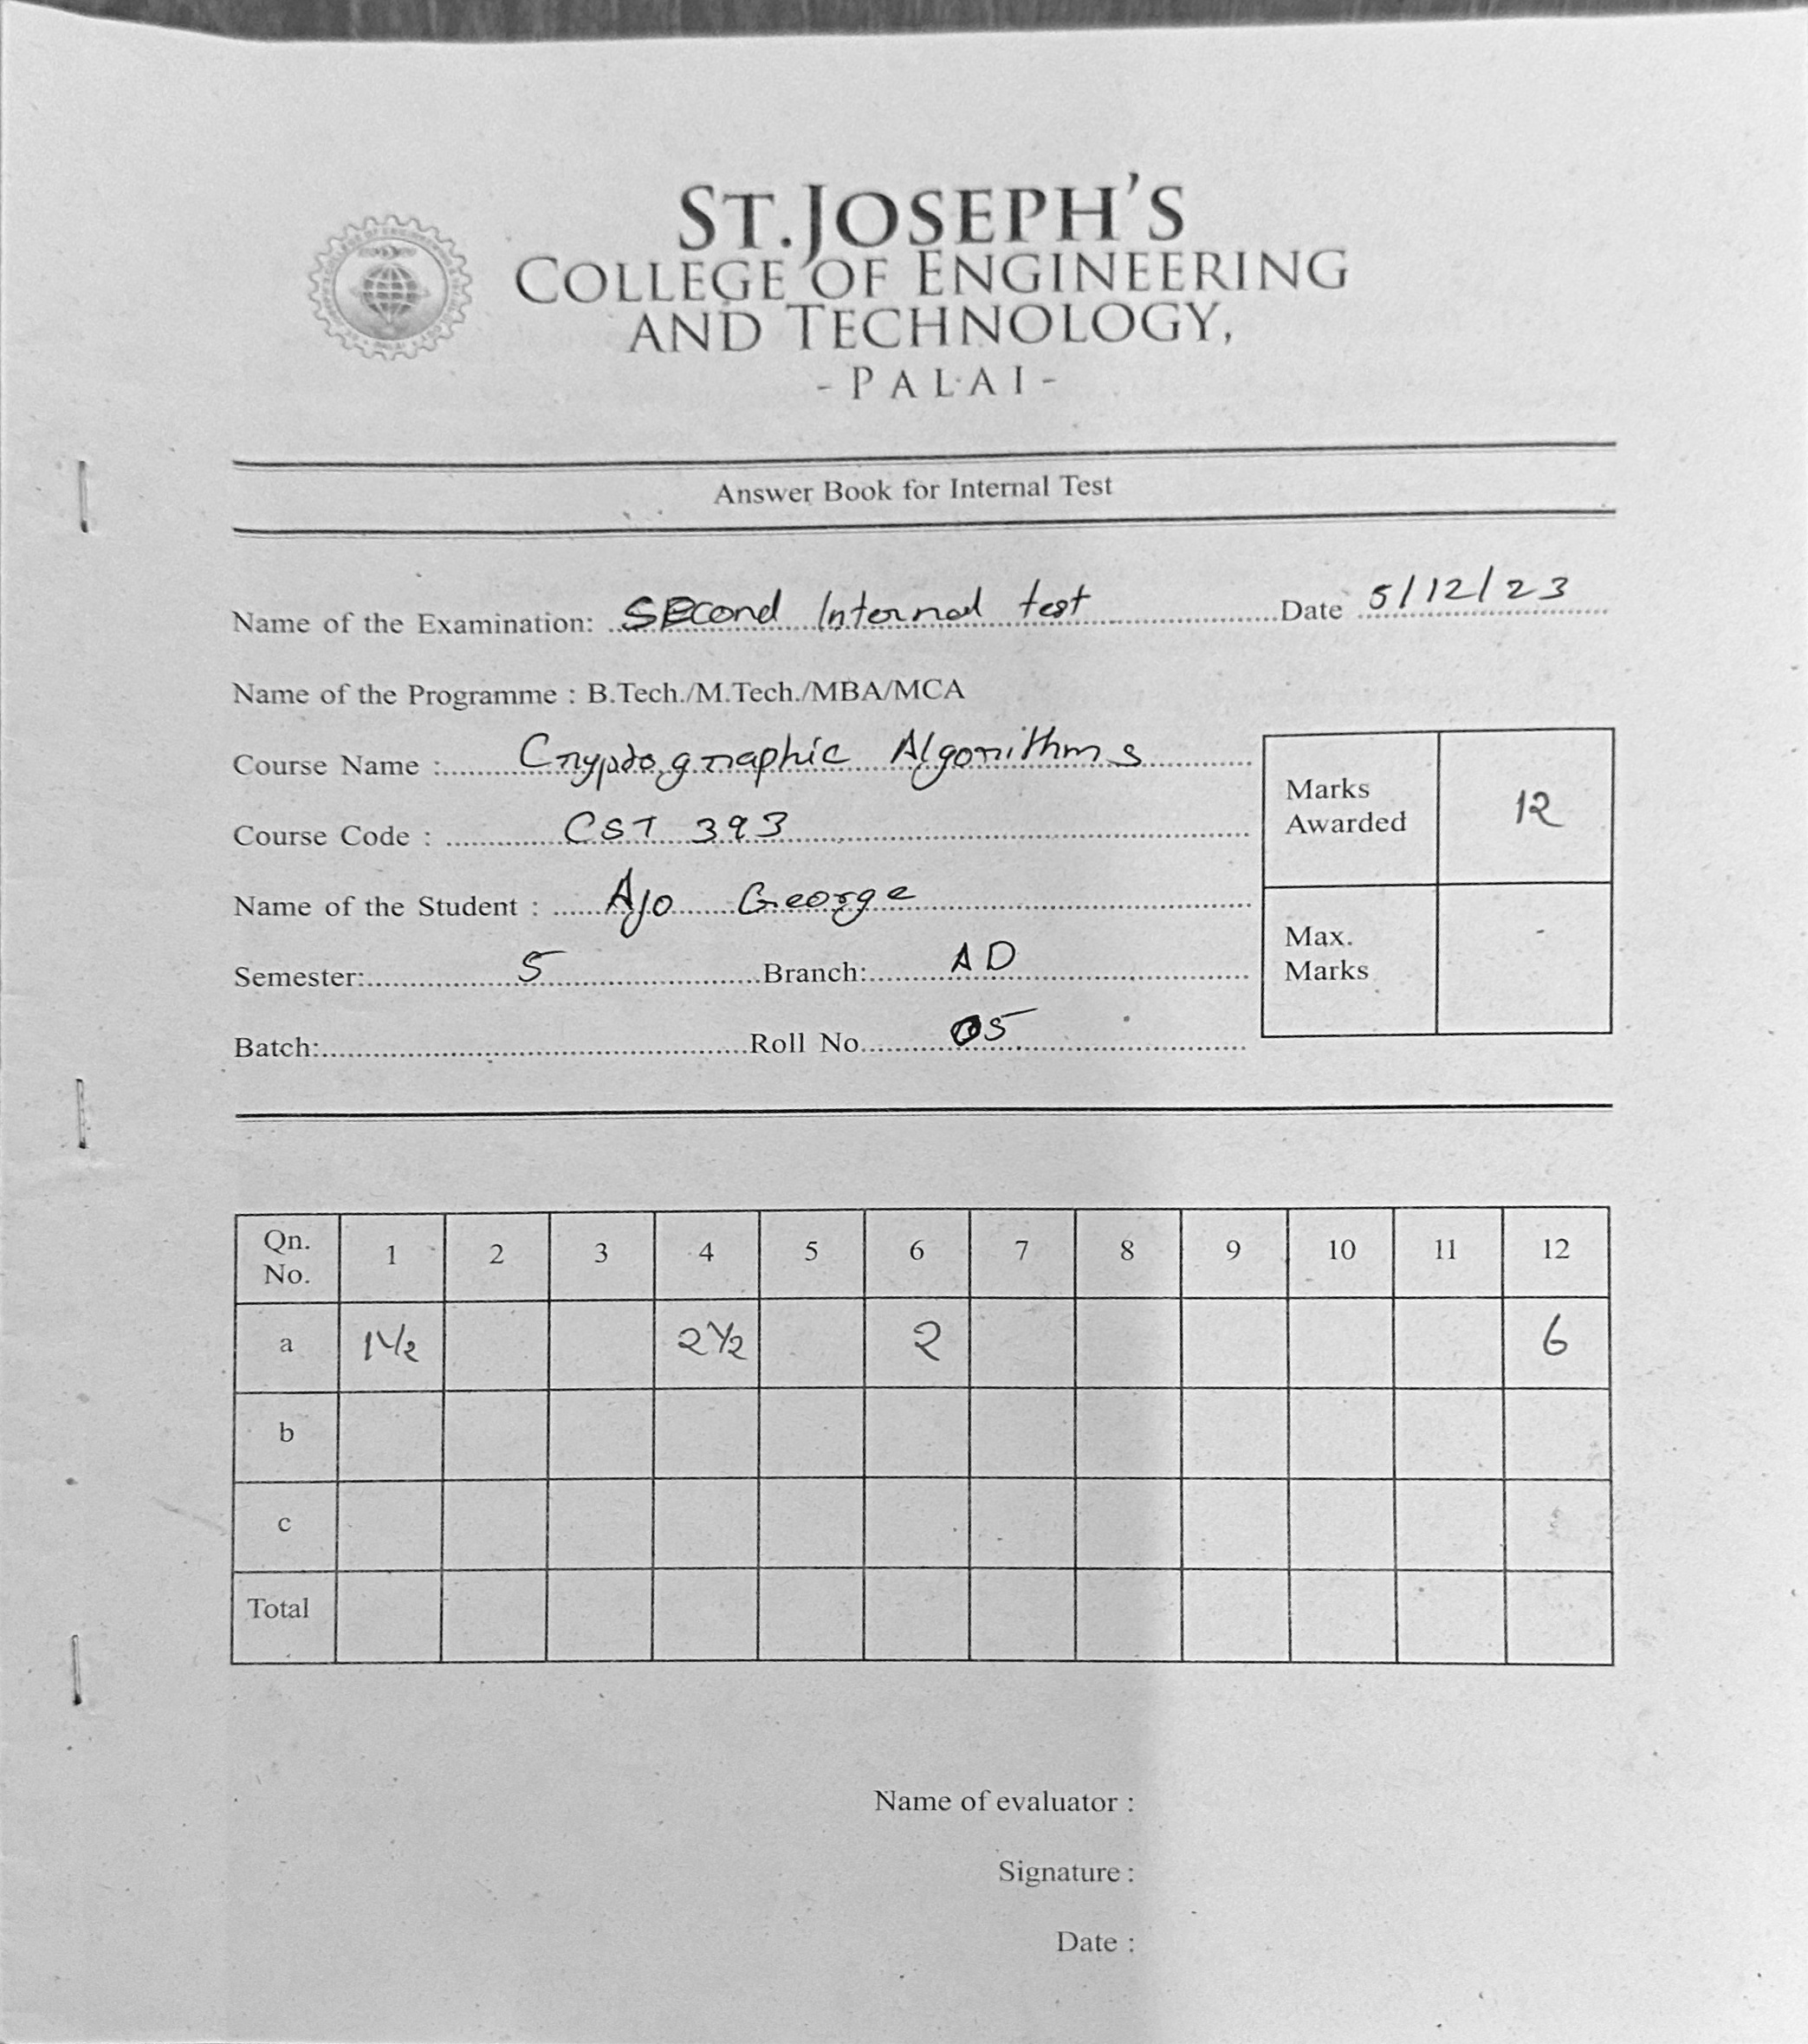 ST. JOSEPH'S
COLLEGE OF ENGINEERING
AND TECHNOLOGY,
- PALAI -
Answer Book for Internal Test
Name of the Examination: SEcond Internal test Date 5/12/23
Name of the Programme : B.Tech./M.Tech./MBA/MCA
Course Name : Cryptographic Algorithms
Course Code : CST 393
Name of the Student : Ajo George
Semester: 5 Branch: AD
Batch: Roll No. 05
Marks Awarded 12
Max. Marks -
Qn. No. 1 2 3 4 5 6 7 8 9 10 11 12
a 1½ 2½ 2 6
b
c
Total
Name of evaluator :
Signature :
Date :